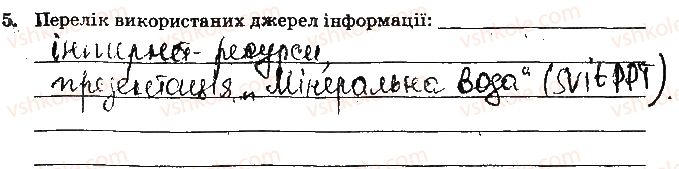 5. Перелік використаних джерел інформації:
інтернет-ресурси,
презентація „Мінеральна вода“ (svit ppt).